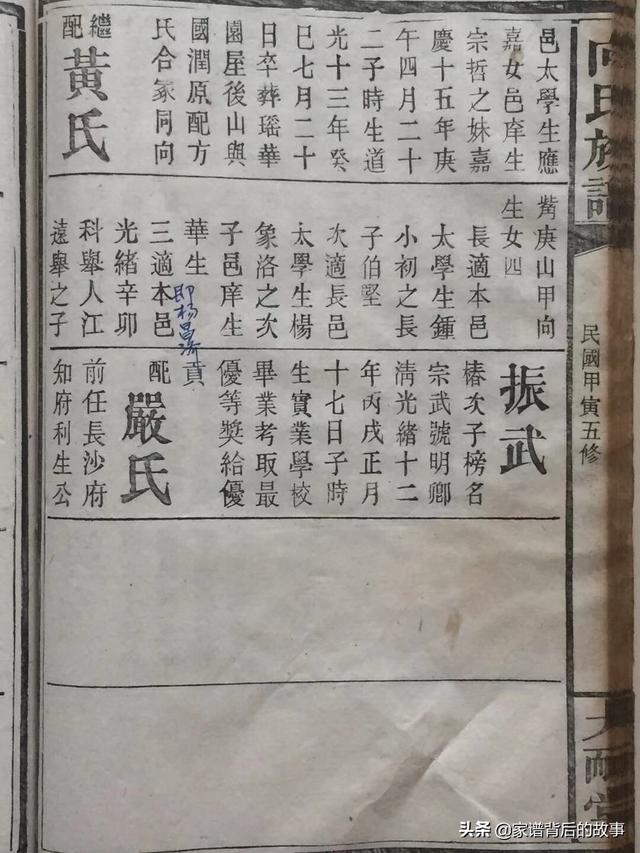 向氏族譜
民國甲寅五修
大耐堂
邑太學生應
嘉女邑庠生
宗哲之妹嘉
慶十五年庚
午四月二十
二子時生道
光十三年癸
巳七月二十
日卒葬瑶華
園屋後山與
國潤原配方
氏合冢同向
繼配黃氏
觜庚山甲向
生女四
長適本邑
太學生鍾
小初之長
子伯堅
次適長邑
太學生楊
象洛之次
子邑庠生
華生
即杨昌济
三適本邑
光緒辛卯
科舉人江
遠舉之子
振武
椿次子榜名
宗武號明卿
淸光緒十二
年丙戌正月
十七日子時
生實業學校
畢業考取最
優等獎給優
貢
配嚴氏
前任長沙府
知府利生公
头条 @家谱背后的故事